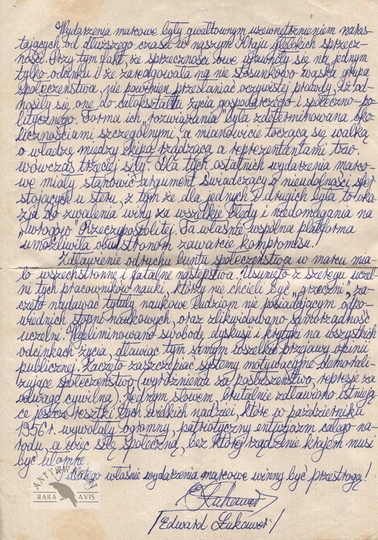 Wydarzenia marcowe były gwałtownym uzewnętrznieniem naras-
tających od dłuższego czasu w naszym kraju wielkich sprzecz-
ności. Przy tym fakt, że sprzeczności owe ujawniły się na jednym
tylko odcinku i że zareagowała na nie stosunkowo wąska grupa
społeczeństwa, nie powinien przesłaniać oczywistej prawdy, iż od-
nosiły się one do całokształtu życia gospodarczego i społeczno-po-
litycznego. Forma ich rozwiązania była zdeterminowana oko-
licznościami szczególnymi, a mianowicie toczącą się walką
o władzę między ekipą rządzącą a reprezentantami tzw.
wówczas trzeciej siły. Dla tych ostatnich wydarzenia marco-
we miały stanowić argument świadczący o nieudolności sfer
stojących u steru, z tym że dla jednych i drugich była to oka-
zja do zwalenia winy za wszelkie błędy i niedomagania na
wrogów Rzeczypospolitej. Ta właśnie wspólna platforma
umożliwiła obu stronom zawarcie kompromisu!
Zdławienie odruchu buntu społeczeństwa w marcu mia-
ło wszechstronne i fatalne następstwa. Usunięto z szeregu uczel-
ni tych pracowników nauki, którzy nie chcieli być „grzeczni", za-
częto nadawać tytuły naukowe ludziom nie posiadającym odpo-
wiednich stopni naukowych, oraz zlikwidowano samorządność
uczelni. Wyeliminowano swobodę dyskusji i krytyki na wszystkich
odcinkach życia, dławiąc tym samym wszelkie przejawy opinii
publicznej. Zaczęto zaszczepiać systemy motywacyjne demorali-
zujące społeczeństwo (wyróżnienia za posłuszeństwo, represje za
odwagę cywilną). Jednym słowem, brutalnie zdławiono istnieją-
ce jeszcze resztki tych wielkich nadziei, które w październiku
1956 r. wywołały ogromny, patriotyczny entuzjazm całego na-
rodu, a więc siły społecznej, bez której rządzenie krajem musi
być ułomne.
Dlatego właśnie wydarzenia marcowe winny być przestrogą!
/Edward Łukawer/
ANTYKWARIAT
RARA AVIS